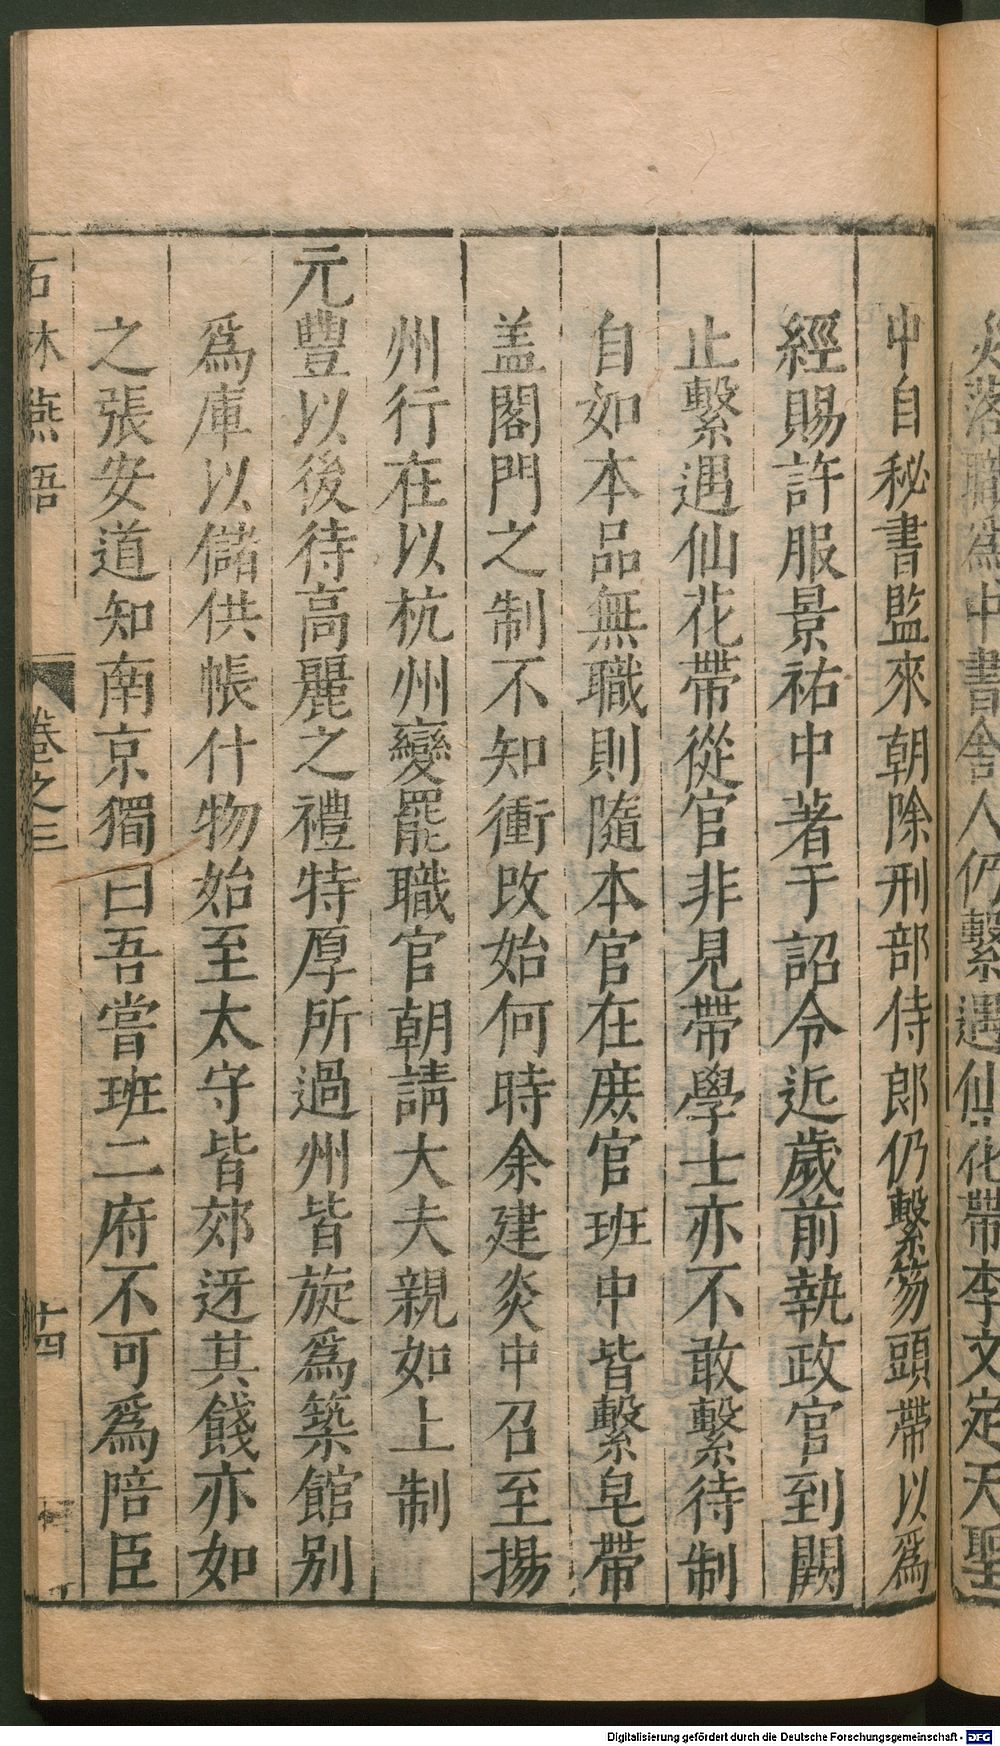 落職爲中書舍人仍繫遇仙花帶李文定天聖
中自秘書監來朝除刑部侍郎仍繫笏頭帶以爲
經賜許服景祐中著于詔令近歲前執政官到闕
止繫遇仙花帶從官非見帶學士亦不敢繫待制
自如本品無職則隨本官在庶官班中皆繫皂帶
盖閣門之制不知衝改始何時余建炎中召至揚
州行在以杭州變罷職官朝請大夫親如上制
元豐以後待高麗之禮特厚所過州皆旋爲築館别
爲庫以儲供帳什物始至太守皆郊迓其餞亦如
之張安道知南京獨曰吾嘗班二府不可爲陪臣
石林燕語 卷之三 十四
Digitalisierung gefördert durch die Deutsche Forschungsgemeinschaft - DFG